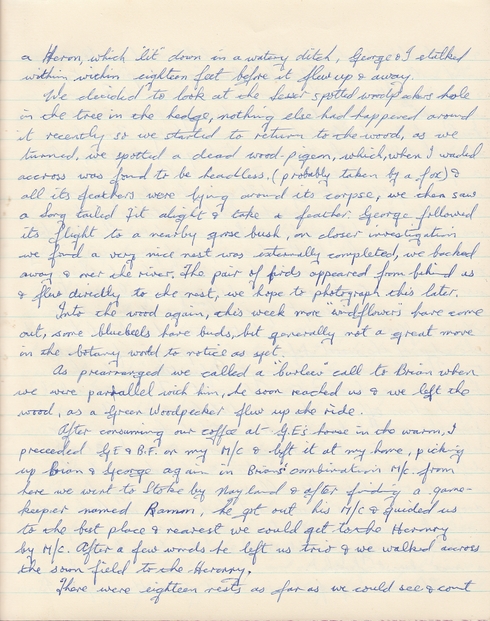 a Heron, which "lit" down in a watery ditch, George & I stalked
within within eighteen feet before it flew up & away.
We decided to look at the Lesser spotted woodpeckers hole
in the tree in the hedge, nothing else had happened around
it recently so we started to return to the wood, as we
turned, we spotted a dead wood-pigeon, which, when I waded
accross was found to be headless, (probably taken by a fox) &
all its feathers were lying around its corpse, we then saw
a Long tailed Tit alight & take a feather. George followed
its flight to a nearby gorse bush, on closer investigation
we find a very nice nest was externally completed, we backed
away & over the river, The pair of birds appeared from behind us
& flew directly to the nest, we hope to photograph this later.
Into the wood again, this week more wildflowers have come
out, some bluebells have buds, but generally not a great move
in the botany world to notice as yet.
As prearranged we called a "curlew" call to Brian when
we were parallel with him, he soon reached us & we left the
wood, as a Green Woodpecker flew up the ride.
After consuming our coffee at G.E's house in the warm, I
preceeded G E & B.F. on my M/C & left it at my home, picking
up Brian & George again in Brians' combination M/C. from
here we went to Stoke by Nayland & after finding a game-
keeper named Ramon, he got out his M/C & guided us
to the best place & nearest we could get to the Heronry
by M/C. After a few words he left us trio & we walked accross
the sown field to the Heronry.
There were eighteen nests as far as we could see & count